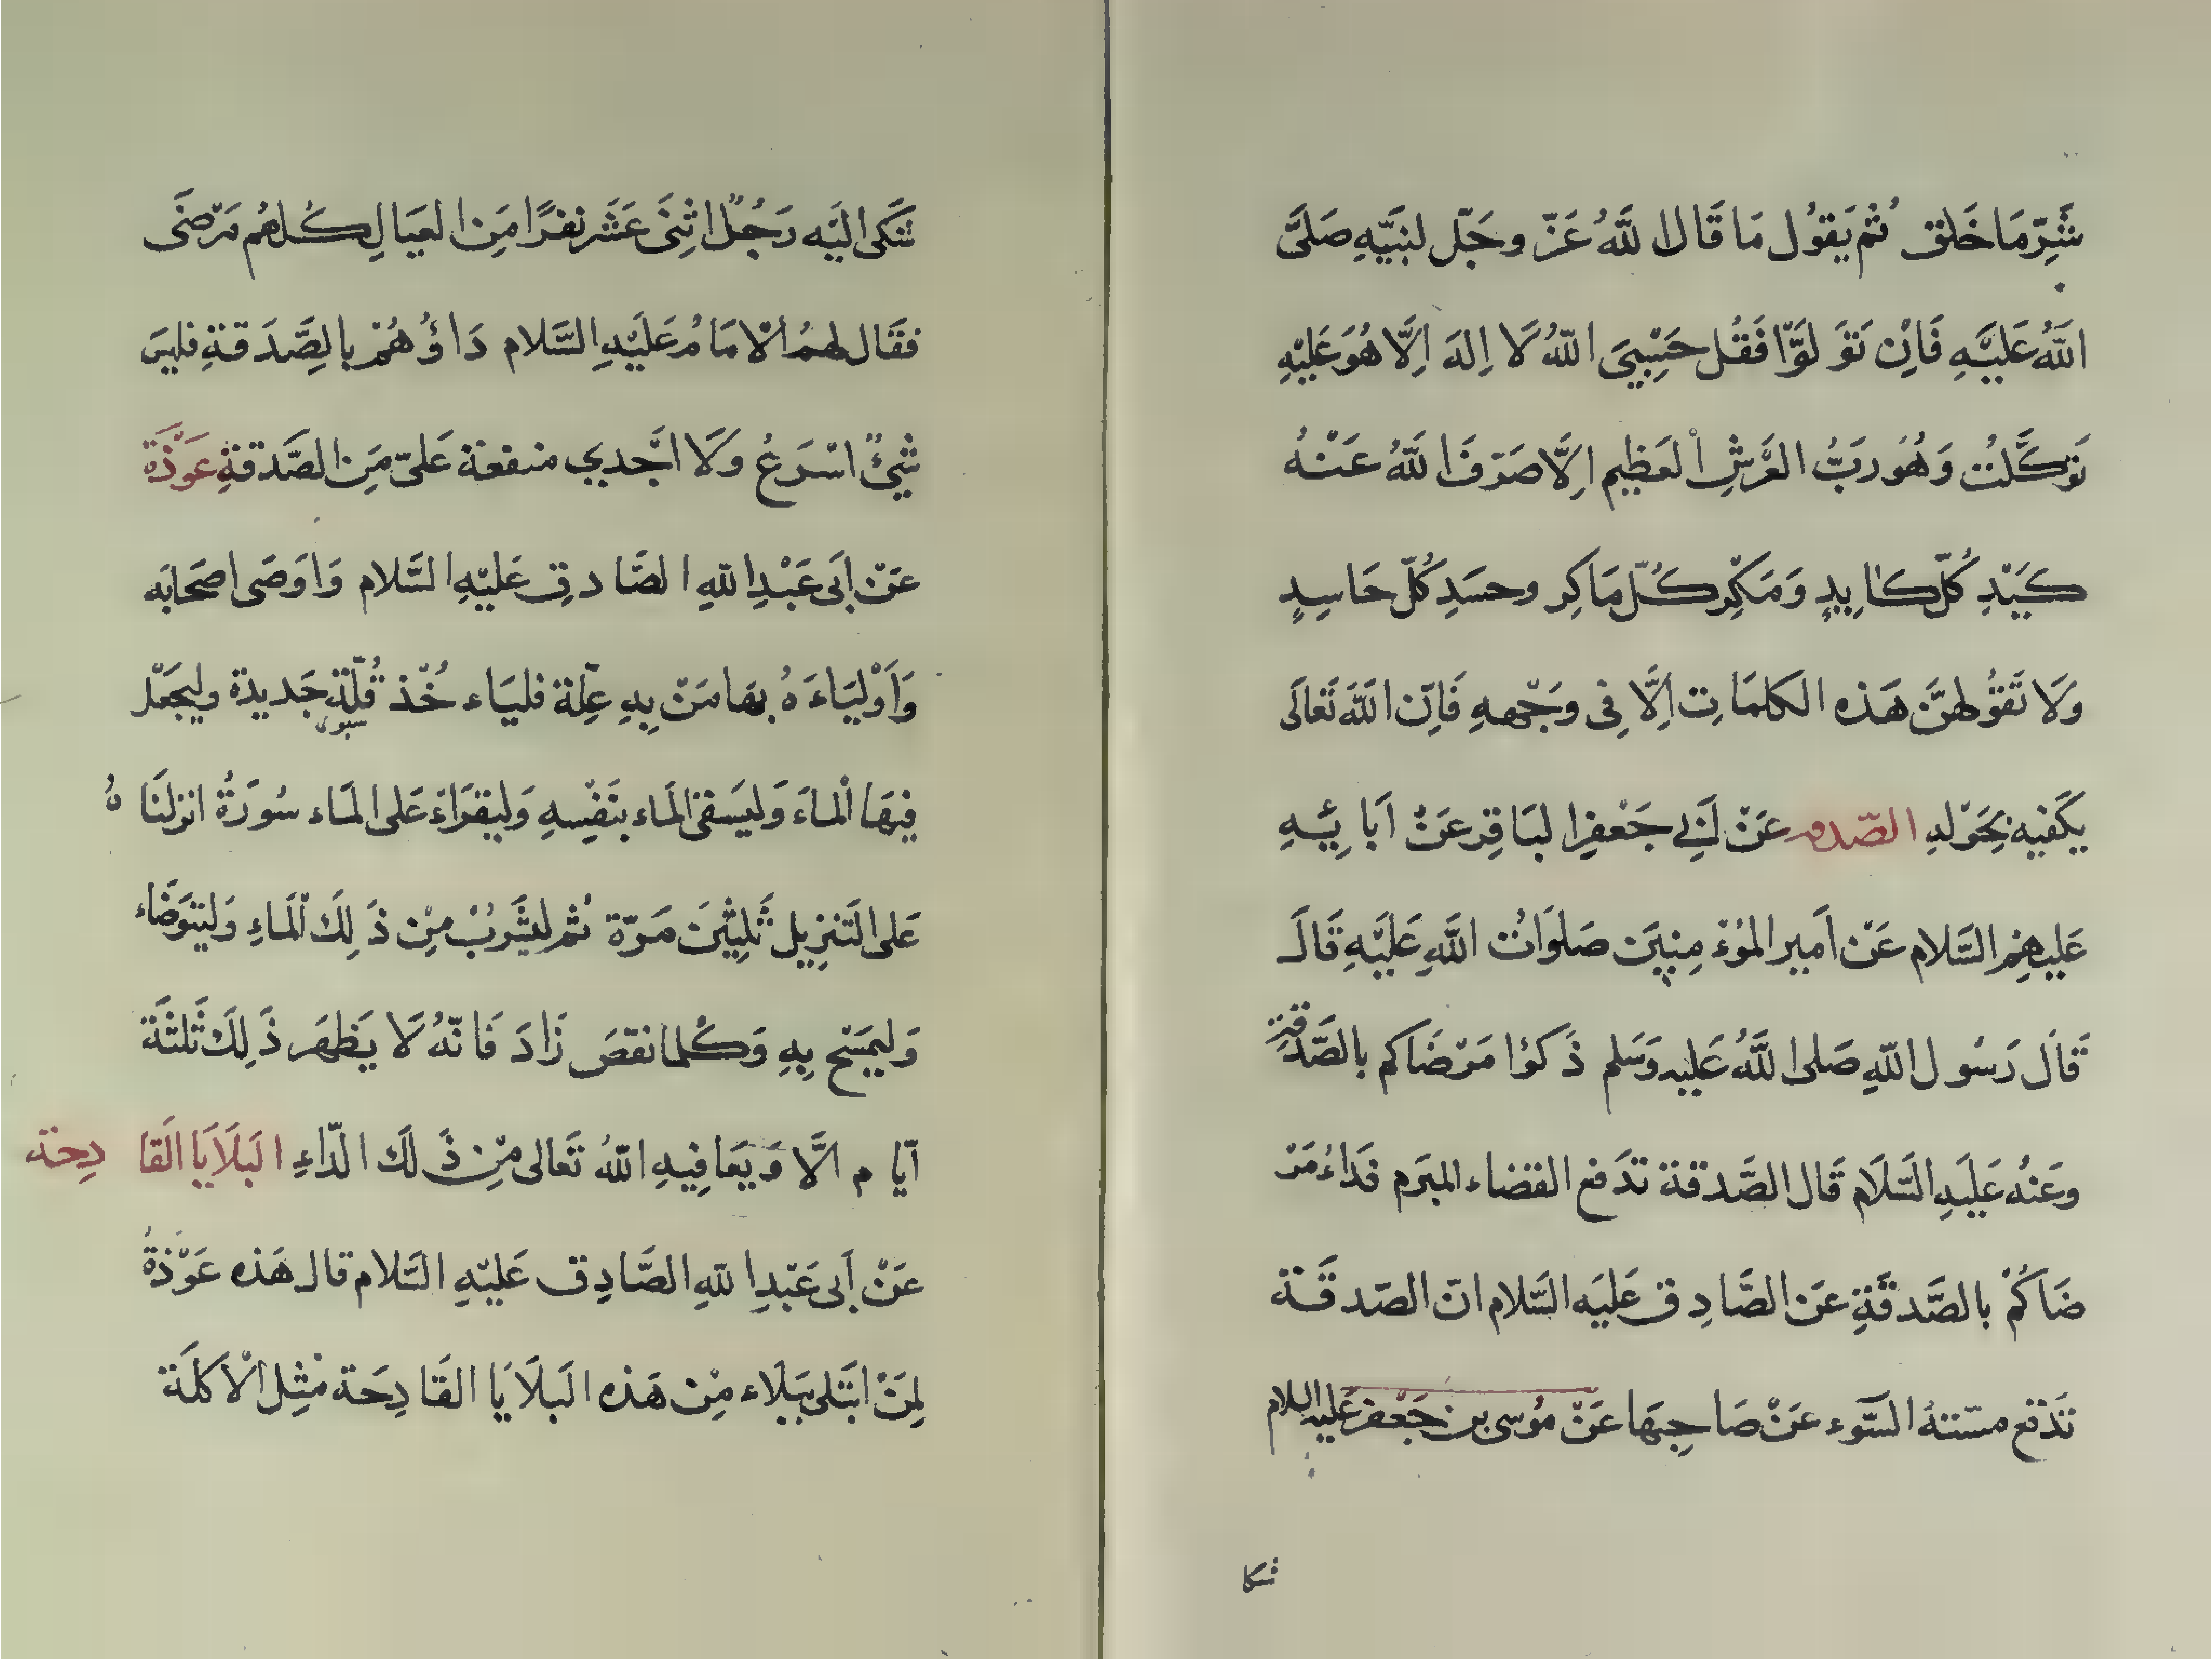 شَرِّ مَا خَلق ثُم يَقوُل مَا قَال اللَّهُ عَزّ وجَلّ لنبَيّهِ صَلىَّ
اللَّهُ عَليَّهِ فَاِنْ تَوَ لوَّا فَقُل حَسِبْيَ اللّهُ لَا اِلهَ اِلَّا هُوَ عَليْهِ
تَوكَّلتُ وَهُوَ ربَّ العَرشِ الْعَظِيم اِلَّا صَرَفَ اللَّهُ عَنْهُ
كَيَدْ كُلّ كاَيِدٍ وَمَكِر كُلّ مَاكِر وحسَدِ كُلّ حَاسِدٍ
وَلَا تَقوُلهنَّ هَذه الكلمَاتِ اِلَّا فِى وَجْههِ فَاِنّ اللَّهَ تَعَالَى
يكَفيه بِحَوْلهِ الصّدقه عَنْ اَبِي جَعْفرِ البَاقِر عَنْ اَبَائِهِ
عَليهِم السَّلام عَنْ اَمير المؤمِنِين صَلوَاتُ اللَّهِ عَليَّهِ قَالَ
قَالَ رَسُول اللّهِ صَلى اللَّهُ عَليه وَسَلم ذَكوُا مَرْضَاكم بالصَّدَقَةِ
وعَنهُ عَليَهِ السَّلَام قَال الصَّدقة تدَفع القضاء المبرَم فدَاءُ مَرْ
ضَاكُمْ بالصَّدقَةِ عَن الصَّادِق عَليَه السَّلام انّ الصّدقَة
تدَفع مسَتهُ السَّوء عَنْ صَاحِبهَا عَنّ مُوسى بن جَعْفر عَليه السلام
شكا
شَكى اليَه رَجُلٌ اثِنَى عَشَر نفرًا مَِن العيَالِ كُلهُم مَرْضَى
فقَال لهمُ الْامَامُ عَليَْهِ السَّلام دَاوُهُمْ بالِصَّدَقةِ فليَس
شَيٌ اسْرَعُ وَلَا اَجْدي منفعة عَلىّ مَِن الصَّدقةِ عَوّذَة
عَنْ اَبى عَبْدِ اللّهِ الصَّادِق عَليْهِ السَّلام وَاوَصَى اصحَابَه
وَاَوْليَاءَهُ بهَا مَنْ بِهِ عِلّة فليَاء خُذ قُلّة جَديدة وليجَعْل
سبوى
فيهَا الْماءَ وَليسَقىَ المَاء بنَفْسِهِ وَليقرَاءَ عَلى المَاء سُورَةُ انزلنَا هُ
عَلى التَنزيل ثَلِثْينَ مَرّة ثُم ليَشَرْبُ مِنْ ذَلِكَ الْمَاءِ وَليتوَضَاء
وَليمَسَح بِهِ وَكُلما نقصَ زَادَ فَانّهُ لَا يَظهَر ذَلِكَ ثَلثَة
اَيام الَّا وَيعَافِيهِ اللّهُ تَعَالى مْنِ ذَلَكَ الدّاءِ البَلَايَا الَقادِحة
عَنْ اَبى عَبْدِ اللّهِ الصَّادِق عَليْهِ السَّلام قال هَذه عَوّذةُ
لِمَنْ ابتَلى ببَلاء مِْن هَذه البَلَايَا القَادِحَة مثِل الْاَكلَة